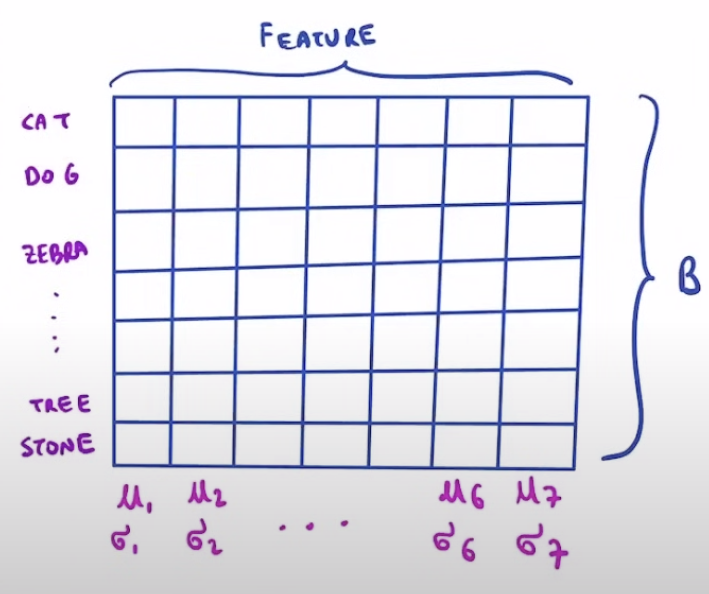 FEATURE
CAT
DOG
ZEBRA
B
TREE
STONE
μ₁ μ₂ ... μ6 μ7
σ₁ σ₂ σ6 σ7